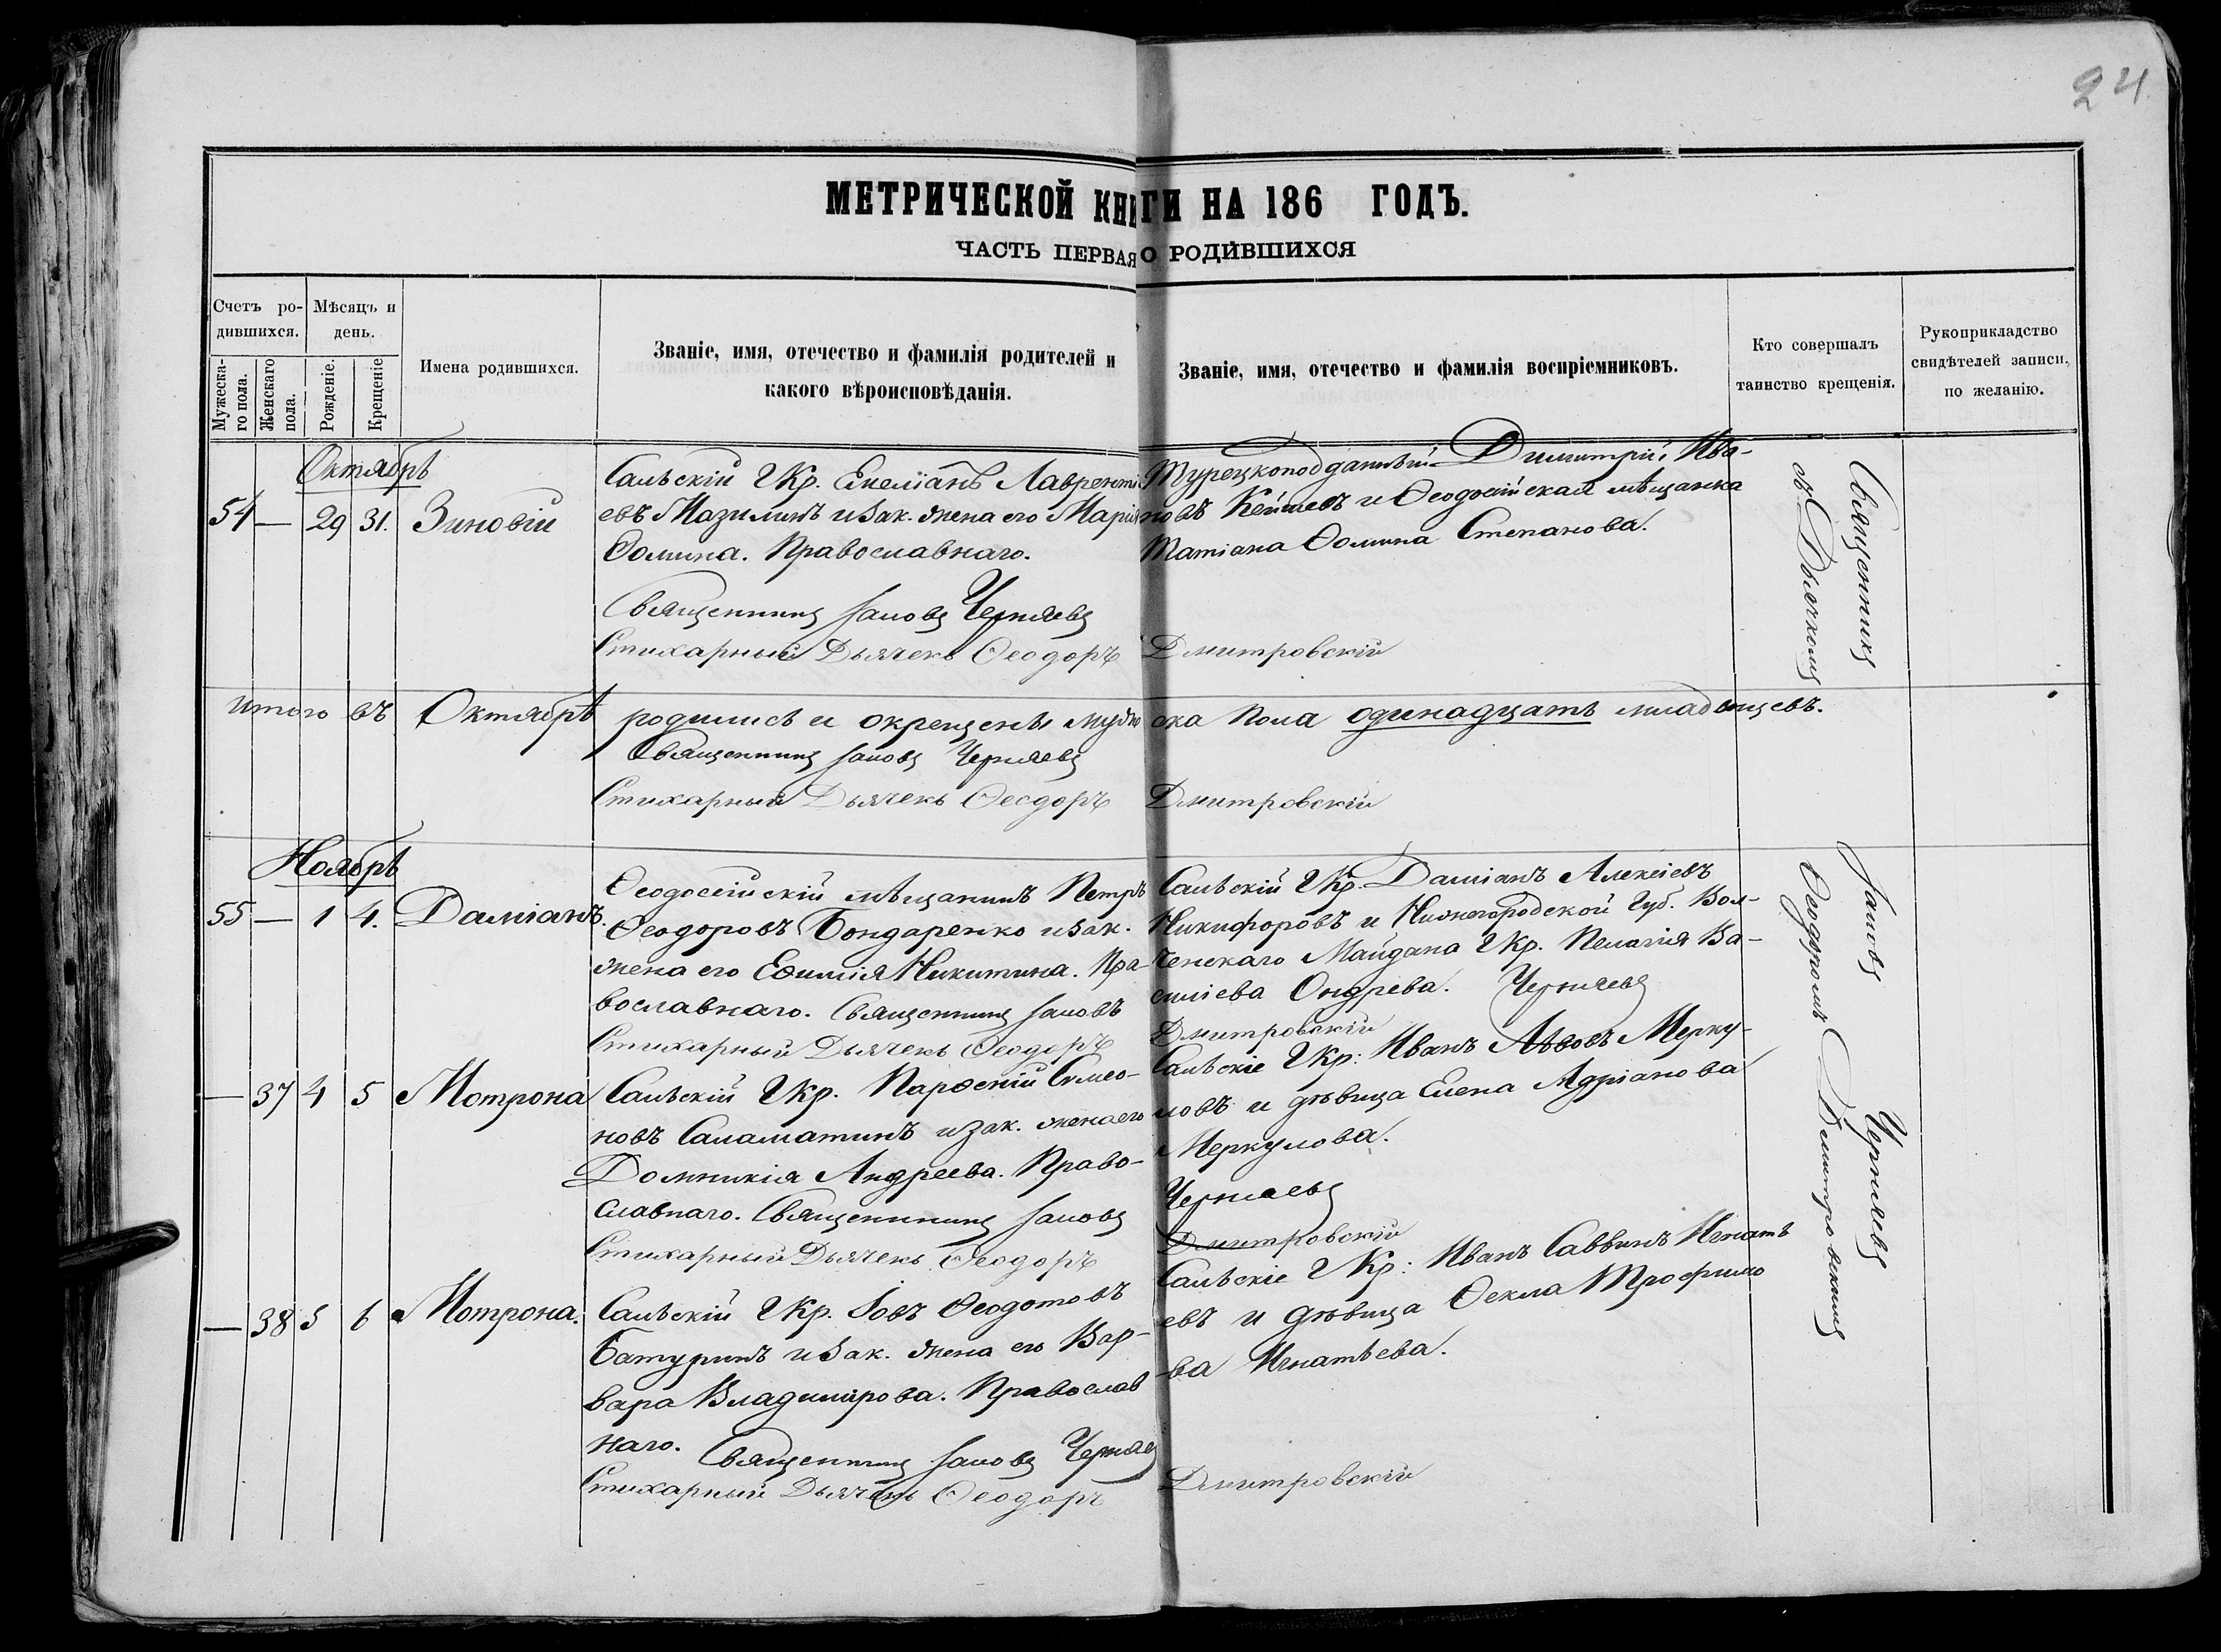 24
МЕТРИЧЕСКОЙ КНИГИ НА 186 ГОДЪ.
ЧАСТЬ ПЕРВАЯ О РОДИВШИХСЯ
Счетъ ро-
дившихся.
Мужеска-
го пола.
Женскаго
пола.
Мѣсяцъ и
день.
Рожденіе.
Крещеніе
Имена родившихся.
Званіе, имя, отечество и фамилія родителей и
какого вѣроисповѣданія.
Званіе, имя, отечество и фамилія воспріемниковъ.
Кто совершалъ
таинство крещенія.
Рукоприкладство
свидѣтелей записи,
по желанію.
Октябрь
54 — 29 31. Зиновій
Сальскій Г Кр. Емеліанъ Лавренті
евъ Мазилинъ и зак. жена его Марія
Ѳомина. Православнаго.
Священникъ Іаковъ Черняевъ
Стихарный Дьячекъ Ѳеодоръ Дмитровскій
Турецкоподданный Димитрій Ива-
новъ Кейшевъ и Ѳеодосійская мѣщанка
Татіана Ѳомина Степанова.
Итого въ Октябрѣ родились и окрещены мужеска пола одинадцать младенцевъ.
Священникъ Іаковъ Черняевъ
Стихарный Дьячекъ Ѳеодоръ Дмитровскій
Ноябрь
55 — 1 4. Даміанъ.
Ѳеодосійскій мѣщанинъ Петръ
Ѳеодоровъ Бондаренко и зак.
жена его Еѳимія Никитина. Пра-
вославнаго. Священникъ Іаковъ
Стихарный Дьячекъ Ѳеодоръ
Сальскій Г Кр. Даміанъ Алексіевъ
Никифоровъ и Нижегородской Губ. Вол-
ченскаго Майдана Г Кр. Пелагія Ва-
силіева Ондрева. Черняевъ
Дмитровскій
— 37 4 5 Мотрона
Сальскій Г Кр. Парѳеній Симео-
новъ Саламатинъ и зак. жена его
Домникія Андреева. Право-
славнаго. Священникъ Іаковъ
Стихарный Дьячекъ Ѳеодоръ
Сальскіе Г Кр: Иванъ Львовъ Мерку-
ловъ и дѣвица Елена Адріанова
Меркулова.
Черняевъ
Дмитровскій
— 38 5 6 Мотрона.
Сальскій Г Кр. Іовъ Ѳеодотовъ
Батуринъ и зак. жена его Вар-
вара Владимірова. Православ
наго. Священникъ Іаковъ Черняев
Стихарный Дьячекъ Ѳеодоръ
Сальскіе Г Кр: Иванъ Саввинъ Игнать
евъ и дѣвица Ѳекла Трофимо
-ва Игнатьева.
Дмитровскій
Священникъ Іаковъ Черняевъ
съ Дьячкомъ Ѳеодоромъ Дмитровскимъ